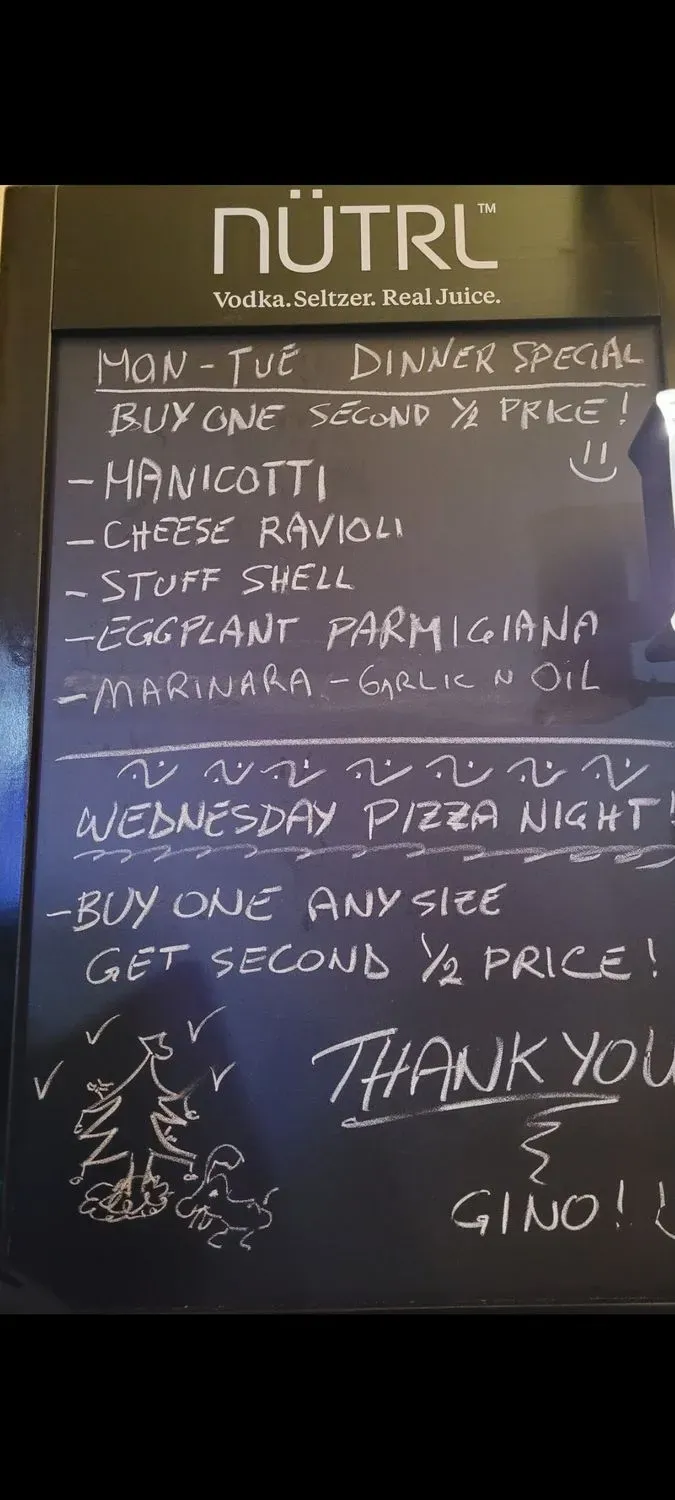 nÜTRL™
Vodka. Seltzer. Real Juice.
MON-TUE DINNER SPECIAL
BUY ONE SECOND ½ PRICE!
- MANICOTTI
- CHEESE RAVIOLI
- STUFF SHELL
- EGGPLANT PARMIGIANA
- MARINARA - GARLIC N OIL
WEDNESDAY PIZZA NIGHT!
- BUY ONE ANY SIZE
GET SECOND ½ PRICE!
THANK YOU
GINO!